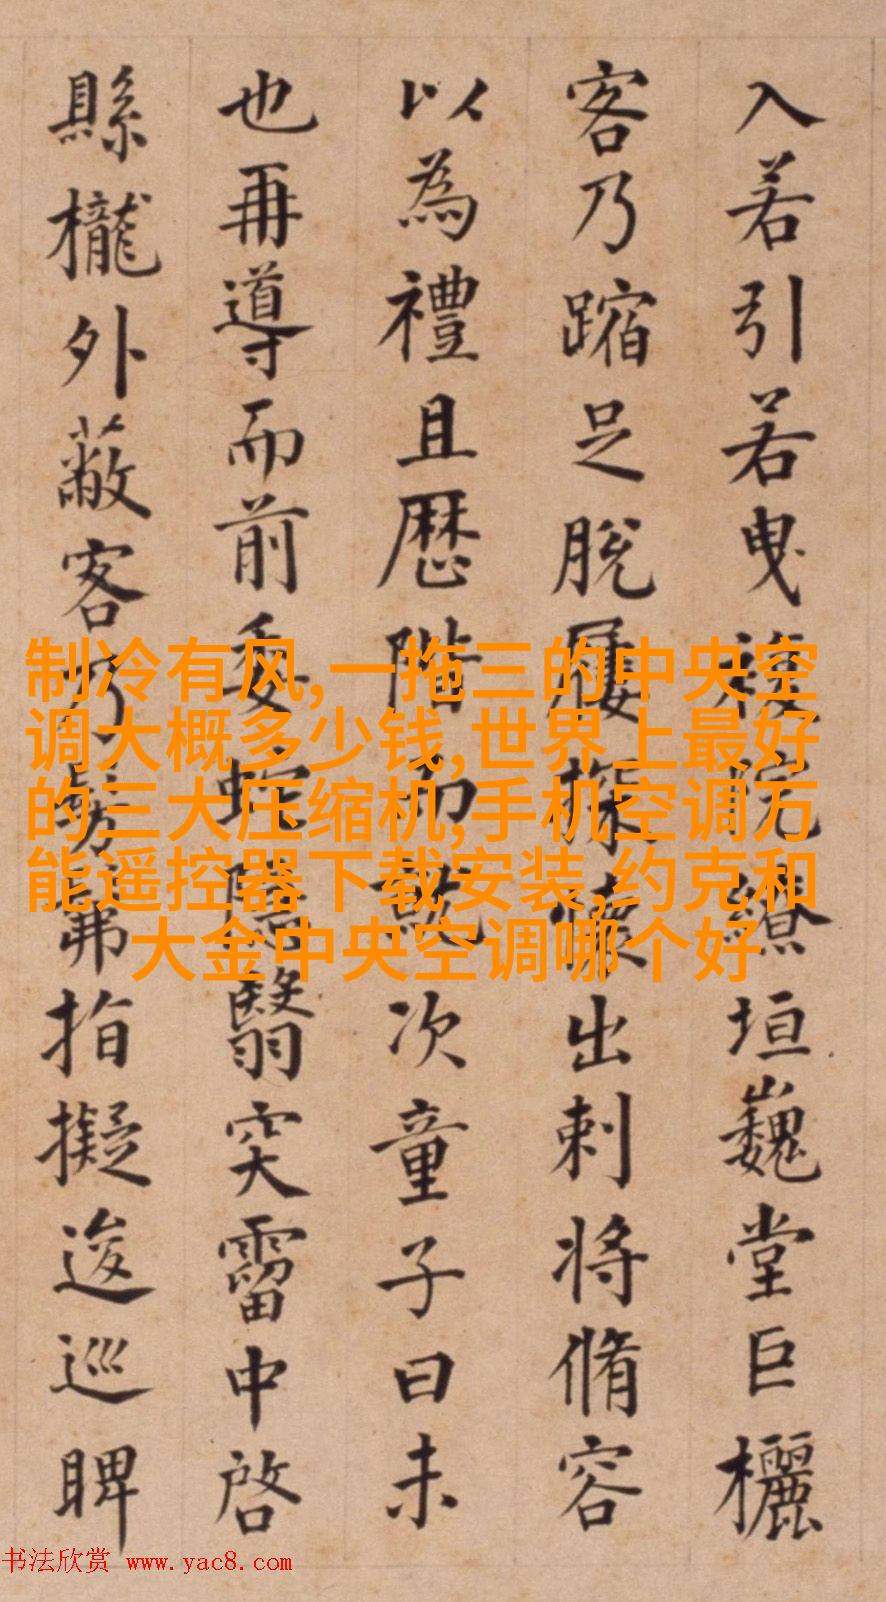 入若引若曳複院繚垣巍堂巨欐
客乃蹜足脫屨探懷出刺將脩容
以為禮且歷階而就次童子曰未
也再導而前委蛇隱翳突霤中啓
縣櫳外蔽客乃髣髴指擬逡巡睥
制冷有风,一拖三的中央空
调大概多少钱,世界上最好
的三大压缩机,手机空调万
能遥控器下载安装,约克和
大金中央空调哪个好
书法欣赏 www.yac8.com